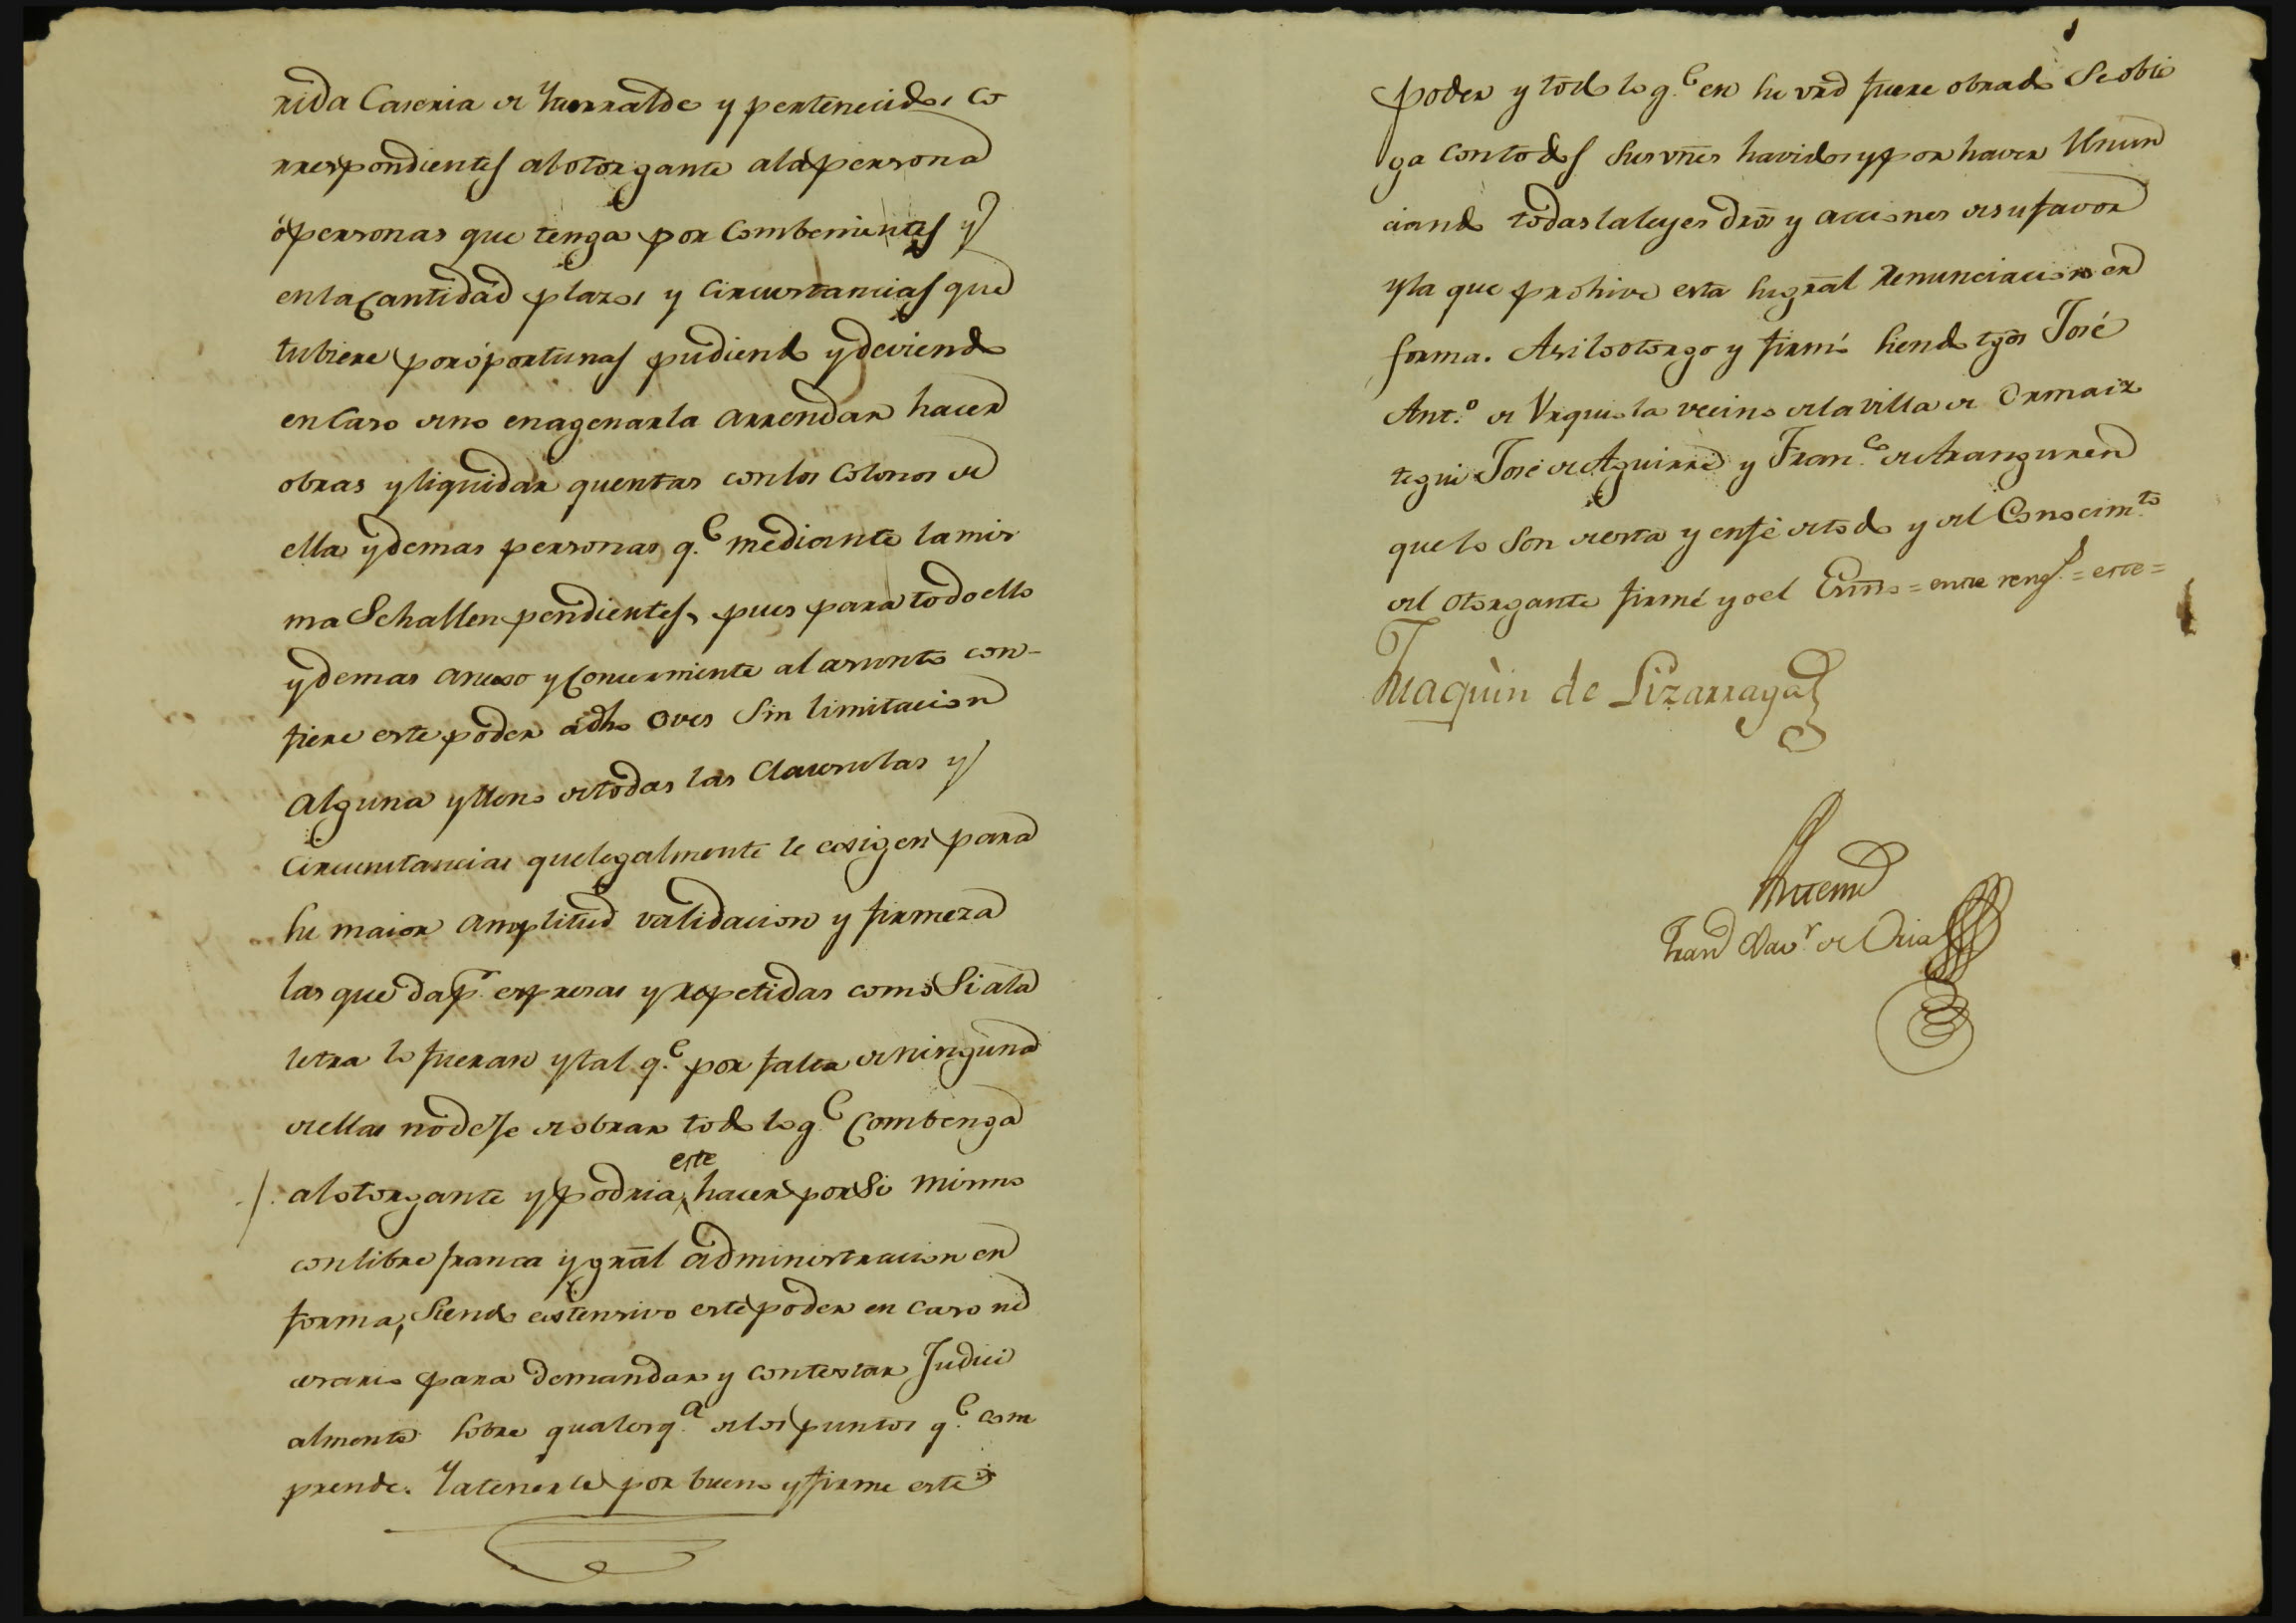 rida Caseria de Yturralde y pertenecidos co
rrespondientes al otorgante ala persona
ó personas que tenga por combenientes y
en la Cantidad plazos y circunstancias que
tubiere por óportunas pudiendo y deviendo
en Caso de no enagenarla arrendar hacer
obras y liquidar quentas con los Colonos de
ella y demas personas q.e mediante la mis
ma Se hallen pendientes, pues para todo ello
y demas anexo y Concerniente al asunto con-
fiere este poder á dho Oves Sin limitacion
alguna y lleno de todas las Clausulas y
Circunstancias que legalmente se exsigen para
su maior amplitud validacion y firmeza
las que da p.r expresas y repetidas como Si ala
letra lo fueran y tal q.e por falta de ninguna
de ellas no deje de obrar todo lo q.e Combenga
al otorgante y podria este hacer por Si mismo
con libre franca y gral administracion en
forma, Siendo extensivo este poder en caso ne
cesario para demandar y contestar Judici
almente sobre qualesq.a de los puntos q.e com
prende. Y a tenerle por bueno y firme este
poder y todo lo q.e en su vrd fuere obrado Se obli
ga con todos Sus vnes havidos y por haver Renun
ciando todas la leyes dros y acciones de su favor
y la que prohive esta su gral Renunciacion en
forma. Asi lo otorgo y firmó Siendo tgos José
Ant.o de Urquiola vecino de la villa de Ormaiz
tegui José de Aguirre y Fran.co de Aranguren
que lo Son de esta y en fé de todo y del Conocim.to
del otorgante firmé yo el Esno = entre rengs. = este =
Juaquin de Lizarraga
Antemi
Fran Xav.r de Oria